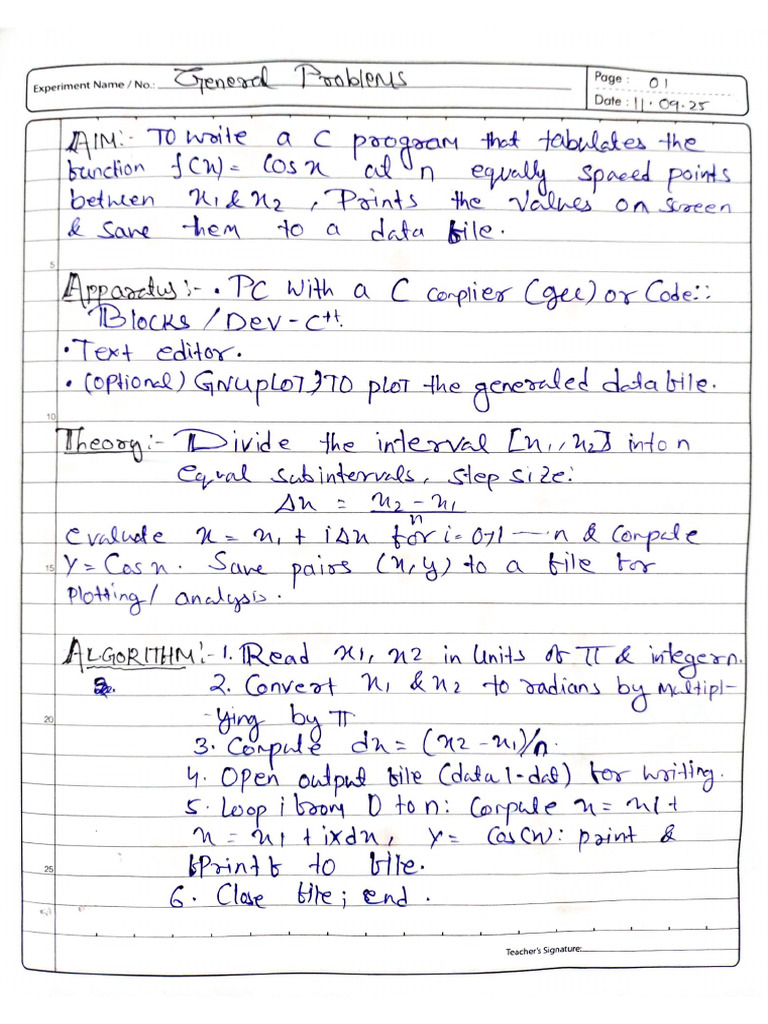 Experiment Name / No.: General Problems
Page : 01
Date : 11.09.25
AIM:- TO write a C program that tabulates the
function f(x) = Cos x at n equally spaced points
between x1 & x2 , Prints the values on screen
& save them to a data file.
5
Apparatus :- • PC with a C complier (gcc) or Code::
Blocks / Dev-C++
• Text editor.
• (optional) GNUPLOT TO PLOT the generated data file.
10
Theory:- Divide the interval [x1, x2] into n
equal subintervals, step size:
Δx = x2 - x1
n
evaluate x = x1 + iΔx for i = 0,1 --- n & Compute
15 Y = Cos x. Save pairs (x, y) to a file for
Plotting / analysis.
ALGORITHM:- 1. Read x1, x2 in units of π & integer n.
2. Convert x1 & x2 to radians by multipl-
20 -ying by π
3. Compute dx = (x2 - x1)/n.
4. Open output file (data1-dat) for writing.
5. Loop i from 0 to n: Compute x = x1 +
x = x1 + i x dx, y = cos(x): print &
25 fPrintf to file.
6. Close file; end.
Teacher's Signature: